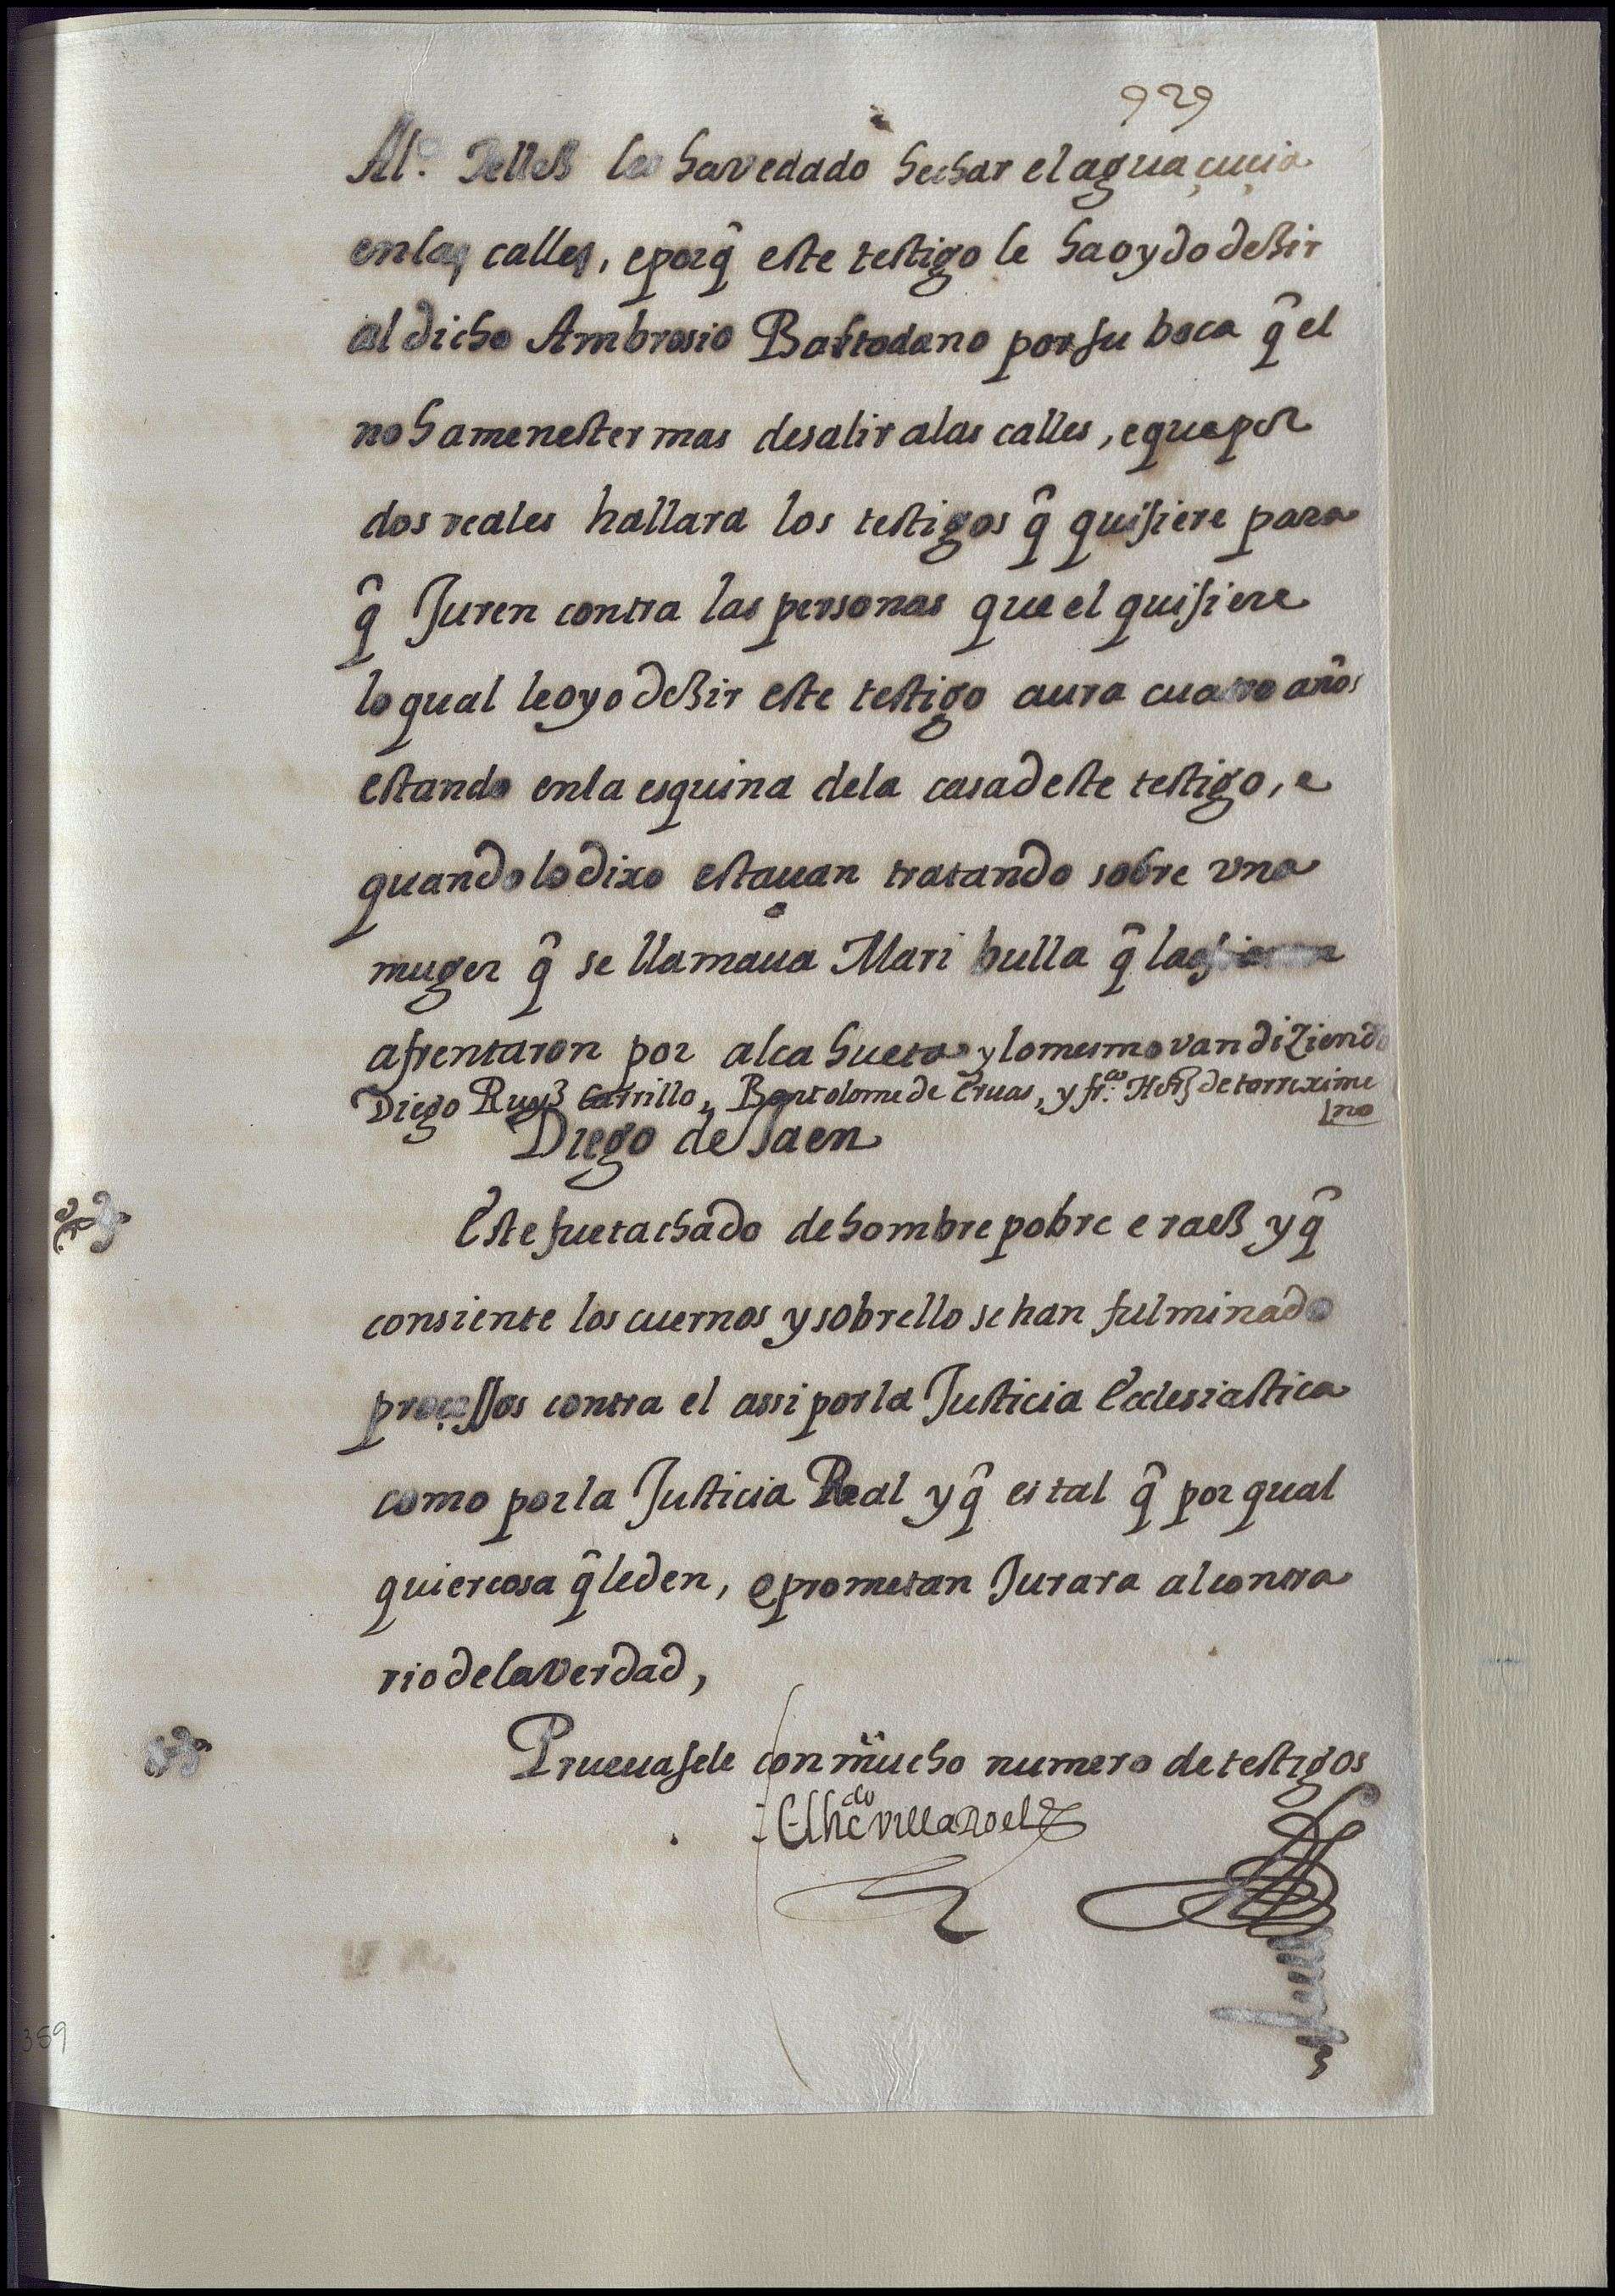 929
Alº. Telles les havedado hechar el agua çuçia
enlas calles, e porq̃ este testigo le ha oydo deßir
al dicho Ambrosio Bastodano por su boca q̃ el
no ha menester mas de salir alas calles, e que por
dos reales hallara los testigos q̃ quisiere para
q̃ Juren contra las personas que el quisiere
lo qual le oyo deßir este testigo aura cuatro años
estando enla esquina dela casa deste testigo, e
quando lo dixo estauan tratando sobre vna
muger q̃ se llamaua Mari bulla q̃ la
afrentaron por alcahueta y lo mesmo van diZiendo
Diego Ruyz Carrillo, Bartolome de Eruas, y frco. Hrz de torreximeno
Diego de Jaen
Este fue tachado de hombre pobre e raeß y q̃
consiente los cuernos y sobrello se han fulminado
proçessos contra el assi por la Justicia Ecclesiastica
como por la Justicia Real y q̃ es tal q̃ por qual
quier cosa q̃ le den, e prometan Jurara al contra
rio de la Verdad,
Prueuasele con mucho numero de testigos
El licdo Villarroel
389